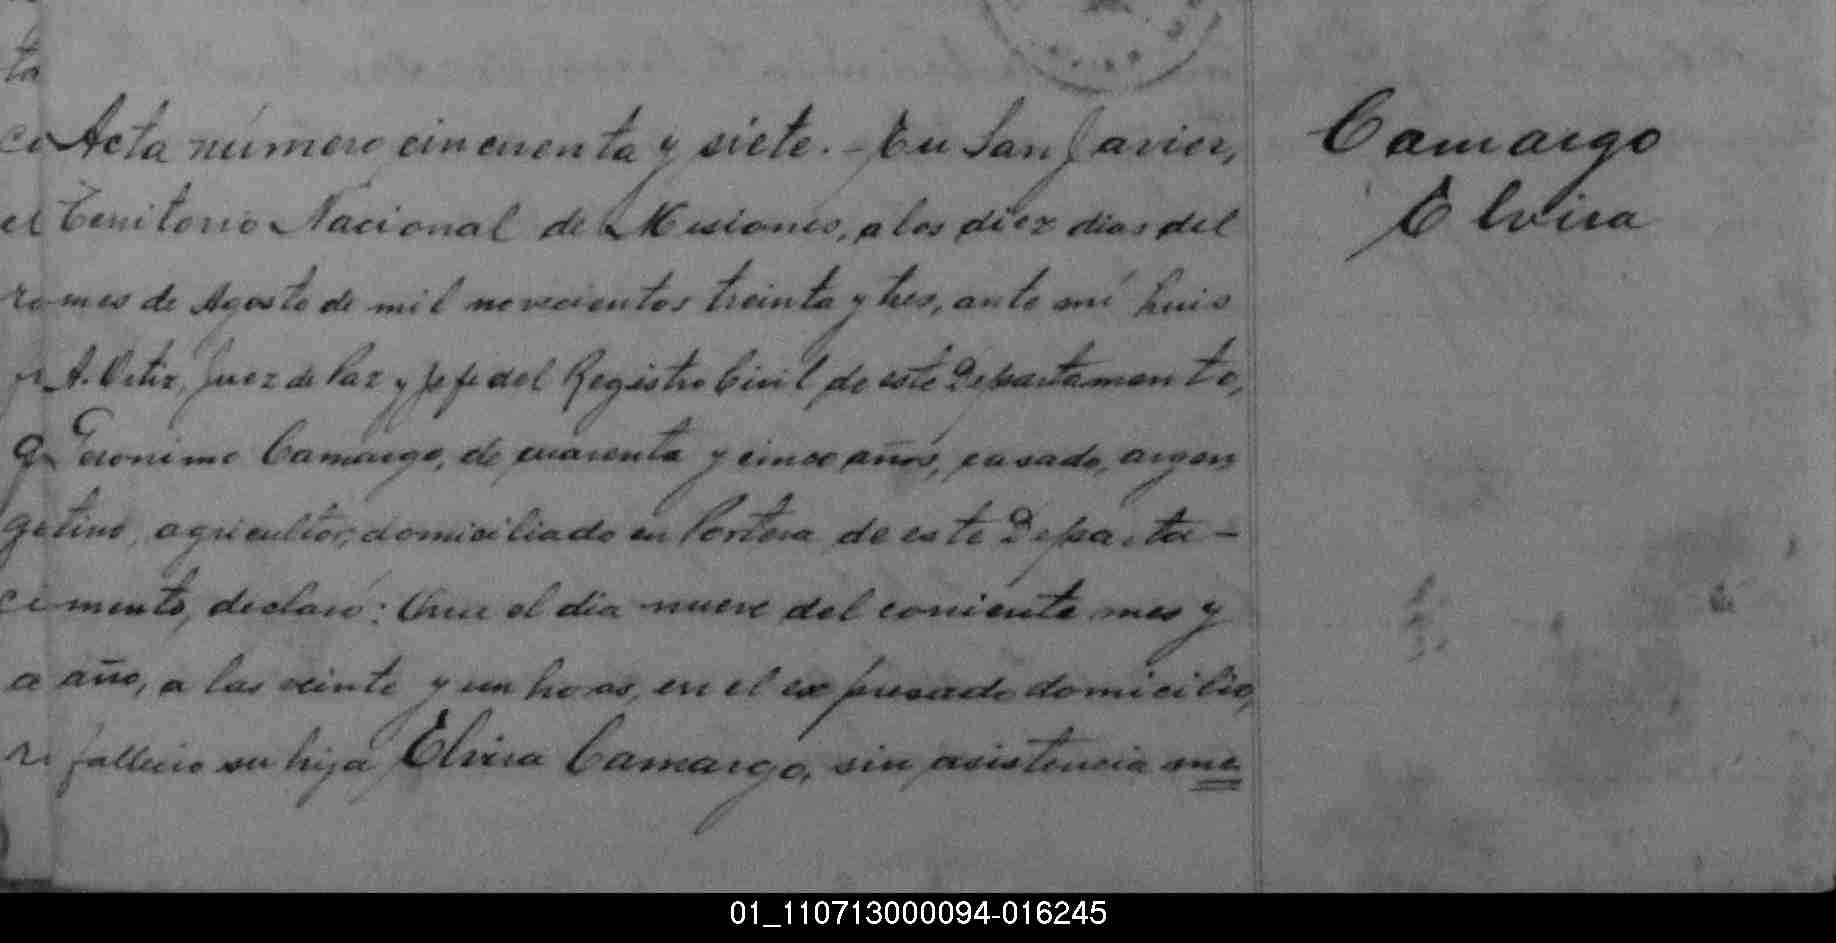 Acta número cincuenta y siete. - En San Javier,
Territorio Nacional de Misiones, a los diez dias del
mes de Agosto de mil novecientos treinta y tres, ante mí Luis
A. Ortiz, Juez de Paz y Jefe del Registro Civil de este Departamento,
Geronimo Camargo, de cuarenta y cinco años, casado, argen
tino, agricultor, domiciliado en Portera de este Departa-
mento, declaró: Que el dia nueve del corriente mes y
año, a las veinte y un horas, en el expresado domicilio,
fallecio su hija Elvira Camargo, sin asistencia me
Camargo
Elvira
01_110713000094-016245